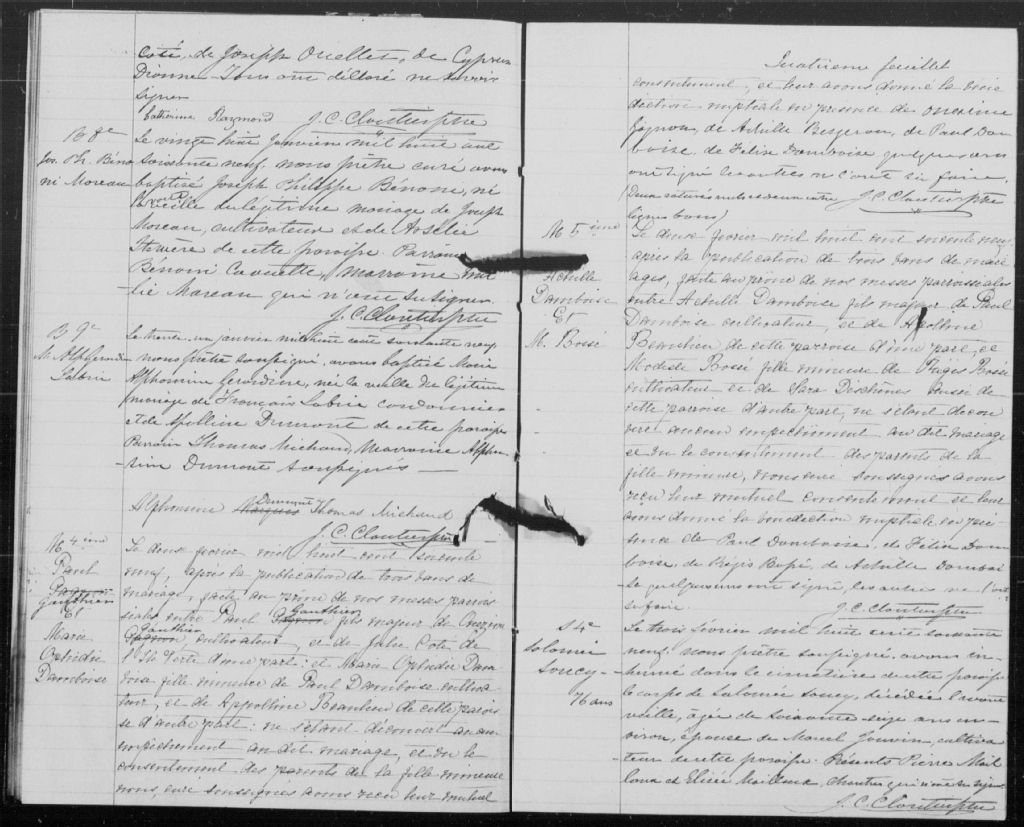 Coté, de Joseph Ouellet, de Cyprien
Dionne. Tous ont déclaré ne savoir
signer
Catherine Raymond J. C. Cloutier ptre
B 8e
Jos. Ph. Béno
ni Moreau
Le vingt huit Janvier mil huit cent
soixante neuf, nous prêtre curé avons
baptisé Joseph Philippe Bénoni, né
la veille du légitime mariage de Joseph
Moreau, cultivateur et de Arsélie
de cette paroisse. Parrain
Bénoni Caouette, Marraine
lie Moreau qui n'ont su signer.
J. C. Cloutier ptre
B 9e
M. Alph. Geraldine
Sabin
Le trente un janvier mil huit cent soixante neuf
nous prêtre soussigné, avons baptisé Marie
Alphonsine Geraldine, née la veille du légitime
mariage de François Labrie cordonnier
et de Apolline Dumont de cette paroisse
Parrain Thomas Michaud, Marraine Alphon
-sine Dumont soussignés —
Dumont
Alphonsine Thomas Michaud
J. C. Cloutier ptre
M 4ième
Paul
Gagnon
Gauthier
Et
Marie
Optridie
Damboise
Le deux fevrier mil huit cent soixante
neuf, après la publication de trois bans de
mariage, faite au prône de nos messes parois
siales entre Paul Gagnon Gauthier fils majeur de
Gagnon Gauthier cultivateur, et de Julie Coté de
l'Ile Verte d'une part: et Marie Optridie Dam
boise fille mineure de Paul Damboise cultiva
teur, et de Appoline Beaulieu de cette parois
se d'autre part: ne s'étant découvert aucun
empêchement au dit mariage, et vu le
consentement des parents de la fille mineure
nous, curé soussignés avons reçu leur mutuel
Quatrième feuillet
consentement, et leur avons donné la béné
diction nuptiale en présence de Onezime
Gagnon, de Achille Bergeron, de Paul Dam
boise, de Félix Damboise quelques uns
ont signé les autres ne l'ont su faire.
(Deux ratures nulles
lignes bons) J. C. Cloutier ptre
M 5ième
Achille
Damboise
Et
M. Bossé
Le deux fevrier mil huit cent soixante neuf
après la publication de trois bans de mari
ages, faite au prône de nos messes paroissiales
entre Achille Damboise fils majeur de Paul
Damboise cultivateur, et de Apolline
Beaulieu de cette paroisse d'une part, et
Modeste Bossé fille mineure de Régis Bossé
cultivateur et de Sara Deschênes aussi de
cette paroisse d'autre part, ne s'étant décou
vert aucun empêchement au dit mariage
et vu le consentement des parents de la
fille mineure, nous curé soussignés avons
reçu leur mutuel consentement et leur
avons donné la bénédiction nuptiale en pré
sence de Paul Damboise, de Félix Dam
boise, de Régis Bossé, de Achille Damboi
se quelques uns ont signé, les autres ne l'ont
su faire.
J. C. Cloutier ptre
S 4e
Salomée
Soucy
76 ans
Le trois février mil huit cent soixante
neuf, nous prêtre soussigné, avons in-
humé dans le cimetière de cette paroisse
le corps de Salomée Soucy, décédée l'avant
veille, agée de soixante seize ans en-
viron, épouse de Marcel Jouvin, cultiva
-teur de cette paroisse. Présents Pierre Mail
loux et Elisée Mailloux, chantres qui n'ont su signer
J. C. Cloutier ptre